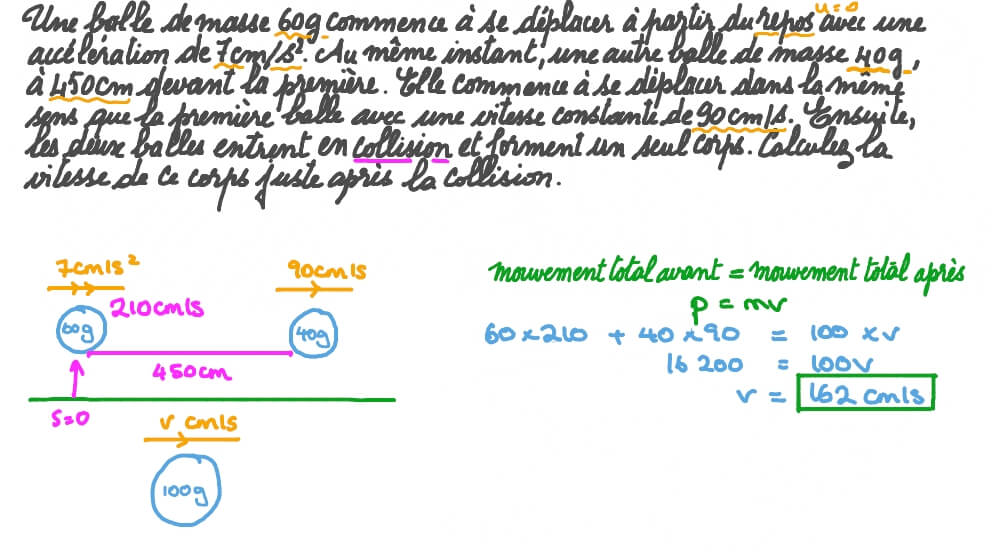 Une balle de masse 60g commence à se déplacer à partir du repos u=0 avec une
accélération de 7cm/s². Au même instant, une autre balle de masse 40g,
à 450cm devant la première. Elle commence à se déplacer dans la même
sens que la première balle avec une vitesse constante de 90cm/s. Ensuite,
les deux balles entrent en collision et forment un seul corps. Calculez la
vitesse de ce corps juste après la collision.
7cm/s²
90cm/s
mouvement total avant = mouvement total après
210cm/s
p = mv
60g
40g
60×210 + 40×90 = 100×v
450cm
16200 = 100v
v = 162 cm/s
s=0
v cm/s
100g